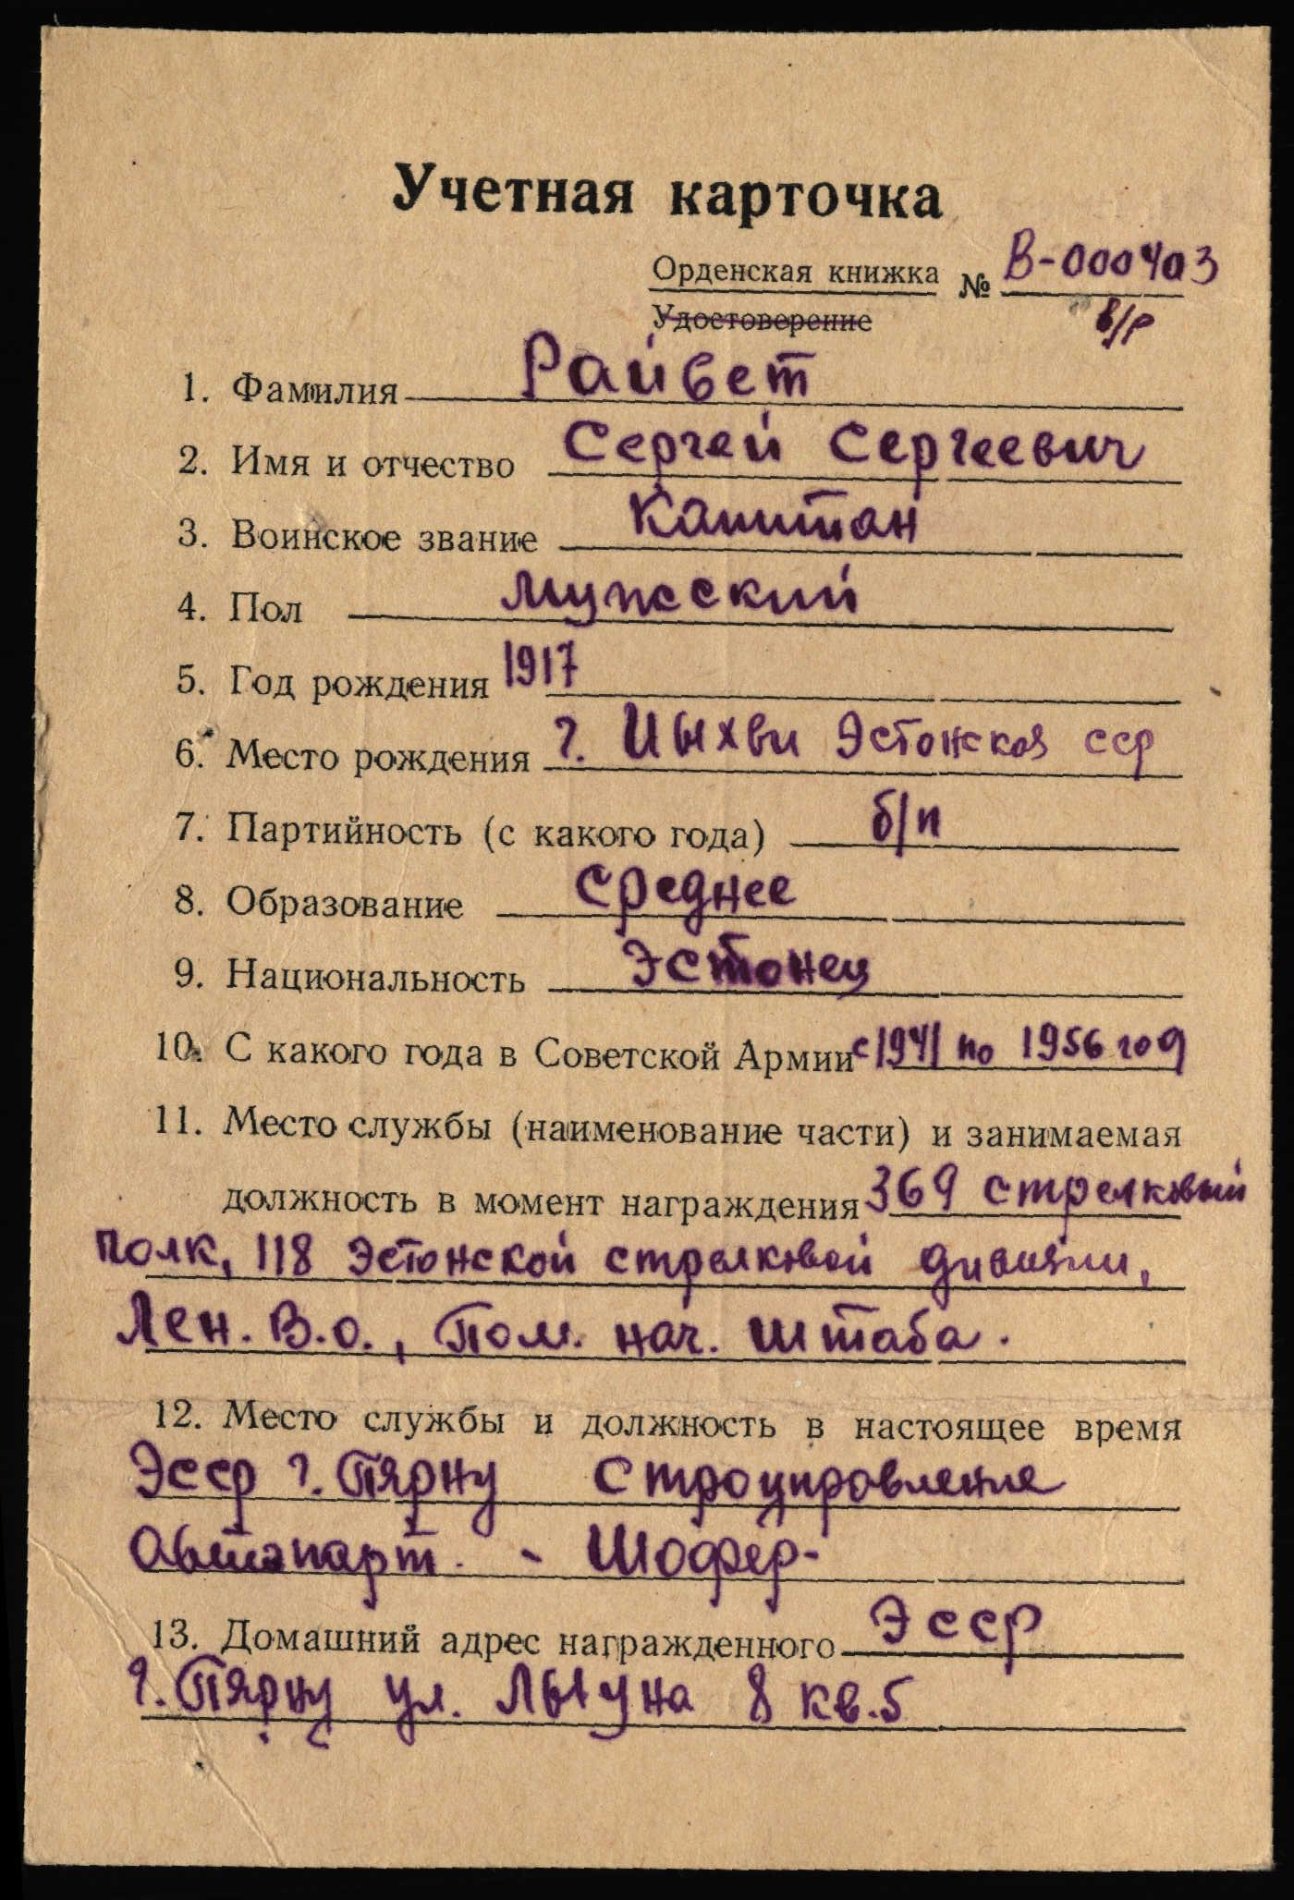 Учетная карточка
Орденская книжка № В-000403
Удостоверение в/р
1. Фамилия Райвет
2. Имя и отчество Сергей Сергеевич
3. Воинское звание Капитан
4. Пол мужский
5. Год рождения 1917
6. Место рождения г. Иыхви Эстонская сср
7. Партийность (с какого года) б/п
8. Образование Среднее
9. Национальность Эстонец
10. С какого года в Советской Армии с 1941 по 1956 год
11. Место службы (наименование части) и занимаемая
должность в момент награждения 369 стрелковый
полк, 118 Эстонской стрелковой дивизии,
Лен. В.о., Пом. нач. штаба.
12. Место службы и должность в настоящее время
Эсср г. Пярну Строуправление
Автопарт. - Шофер-
13. Домашний адрес награжденного Эсср
г. Пярну ул. Лыуна 8 кв. 5